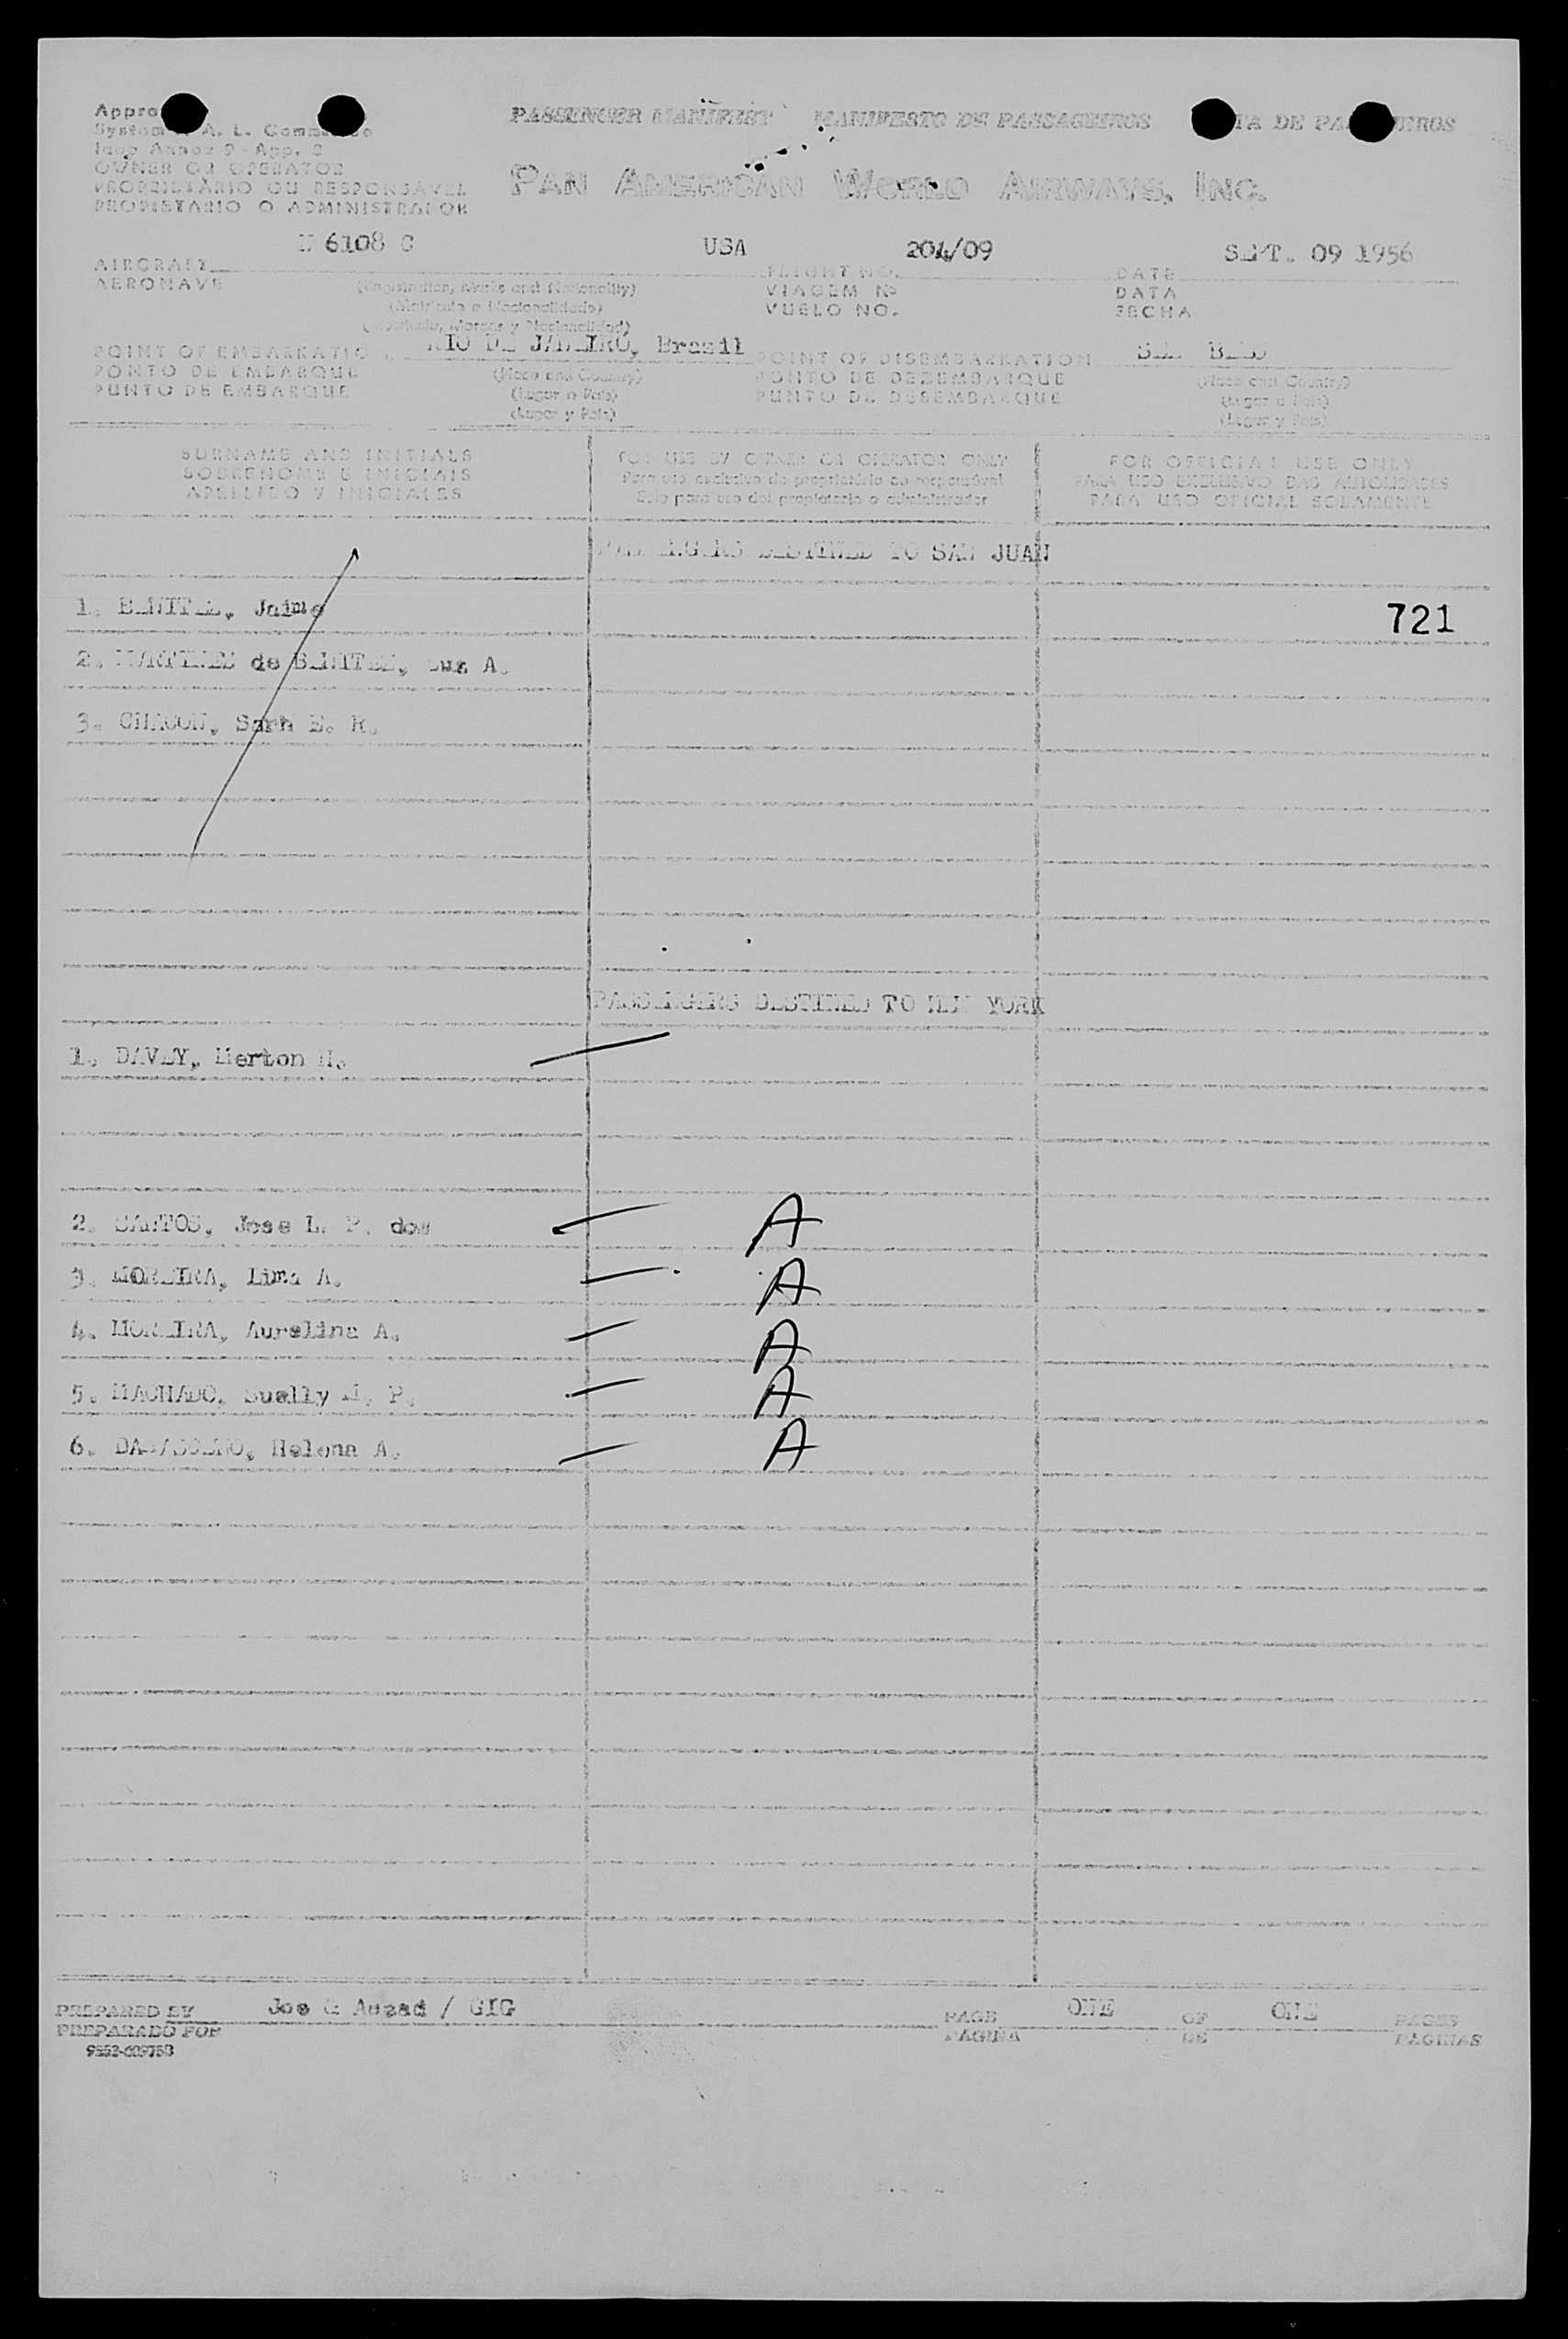 PASSENGER MANIFEST MANIFESTO DE PASSAGEIROS DE
A. L.
Annex 9 - App. 2
OWNER OR OPERATOR
PROPRIETÁRIO OU RESPONSÁVEL
PROPIETARIO O ADMINISTRADOR
PAN AMERICAN WORLD AIRWAYS, INC.
6108 C USA 204/09 SEPT. 09 1956
AIRCRAFT FLIGHT NO. DATE
AERONAVE (Registration, Marks and Nationality) VIAGEM Nº DATA
(Matrícula e Nacionalidade) VUELO NO. FECHA
(Matrícula, Marcas y Nacionalidad)
RIO DE JANEIRO, Brasil
POINT OF EMBARKATION POINT OF DISEMBARKATION
PONTO DE EMBARQUE (Place and Country) PONTO DE DESEMBARQUE (Place and Country)
PUNTO DE EMBARQUE (Lugar e País) PUNTO DE DESEMBARQUE (Lugar e País)
(Lugar y País) (Lugar y País)
SURNAME AND INITIALS FOR USE BY OWNER OR OPERATOR ONLY FOR OFFICIAL USE ONLY
SOBRENOME E INICIAIS Para uso exclusivo do proprietário ou responsável PARA USO EXCLUSIVO DAS AUTORIDADES
APELLIDO Y INICIALES Solo para uso del propietario o administrador PARA USO OFICIAL SOLAMENTE
PASSENGERS DESTINED TO SAN JUAN
1. BENITEZ, Jaime 721
2. MARTINEZ de BENITEZ, A.
3. CHACON, Sarh E. R.
PASSENGERS DESTINED TO NEW YORK
1. DAVEY, Merton H.
2. SANTOS, Jose L. P. dos A
3. MOREIRA, Lima A. A
4. MOREIRA, Aurelina A. A
5. MACHADO, Suelly M. P. A
6. Helena A. A
PREPARED BY Jos G Auzad / GIG PAGE ONE OF ONE PAGES
PREPARADO POR PAGINA DE PAGINAS